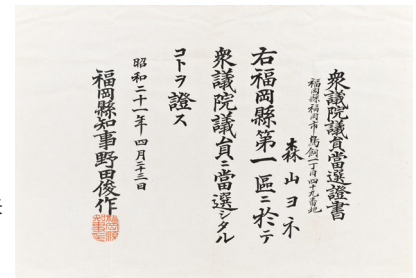 衆議院議員當選證書
福岡縣福岡市鳥飼一丁目四十九番地
森山ヨネ
右福岡縣第一區ニ於テ
衆議院議員ニ當選シタル
コトヲ證ス
昭和二十一年四月二十三日
福岡縣知事野田俊作